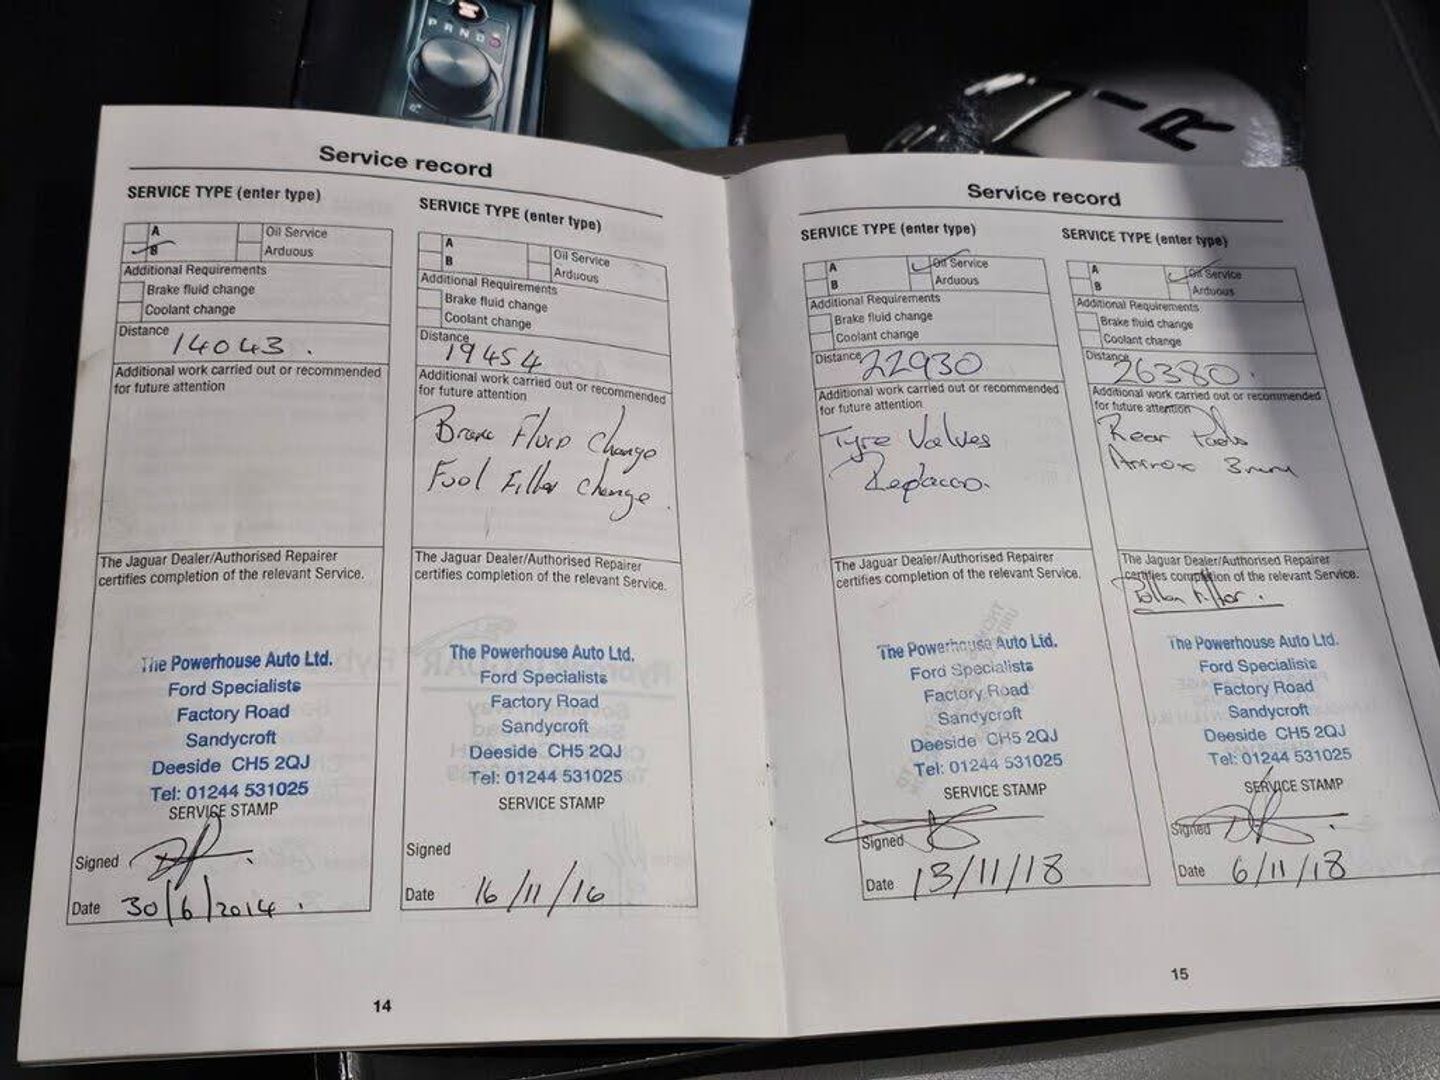 P R N D S
R
Service record
SERVICE TYPE (enter type)
A
Oil Service
B
Arduous
Additional Requirements
Brake fluid change
Coolant change
Distance
14043.
Additional work carried out or recommended
for future attention
The Jaguar Dealer/Authorised Repairer
certifies completion of the relevant Service.
The Powerhouse Auto Ltd.
Ford Specialists
Factory Road
Sandycroft
Deeside CH5 2QJ
Tel: 01244 531025
SERVICE STAMP
Signed
Date 30/6/2014.
SERVICE TYPE (enter type)
A
Oil Service
B
Arduous
Additional Requirements
Brake fluid change
Coolant change
Distance
19454
Additional work carried out or recommended
for future attention
Brake Fluid Change
Fuel Filter Change.
The Jaguar Dealer/Authorised Repairer
certifies completion of the relevant Service.
The Powerhouse Auto Ltd.
Ford Specialists
Factory Road
Sandycroft
Deeside CH5 2QJ
Tel: 01244 531025
SERVICE STAMP
Signed
Date 16/11/16
14
Service record
SERVICE TYPE (enter type)
A
Oil Service
B
Arduous
Additional Requirements
Brake fluid change
Coolant change
Distance 22930
Additional work carried out or recommended
for future attention
Tyre Valves
Replaced.
The Jaguar Dealer/Authorised Repairer
certifies completion of the relevant Service.
The Powerhouse Auto Ltd.
Ford Specialists
Factory Road
Sandycroft
Deeside CH5 2QJ
Tel: 01244 531025
SERVICE STAMP
Signed
Date 13/11/18
SERVICE TYPE (enter type)
A
Oil Service
B
Arduous
Additional Requirements
Brake fluid change
Coolant change
Distance
26380.
Additional work carried out or recommended
for future attention
Rear Pads
Approx 3mm
The Jaguar Dealer/Authorised Repairer
certifies completion of the relevant Service.
Pollen Filter.
The Powerhouse Auto Ltd.
Ford Specialists
Factory Road
Sandycroft
Deeside CH5 2QJ
Tel: 01244 531025
SERVICE STAMP
Signed
Date 6/11/18
15